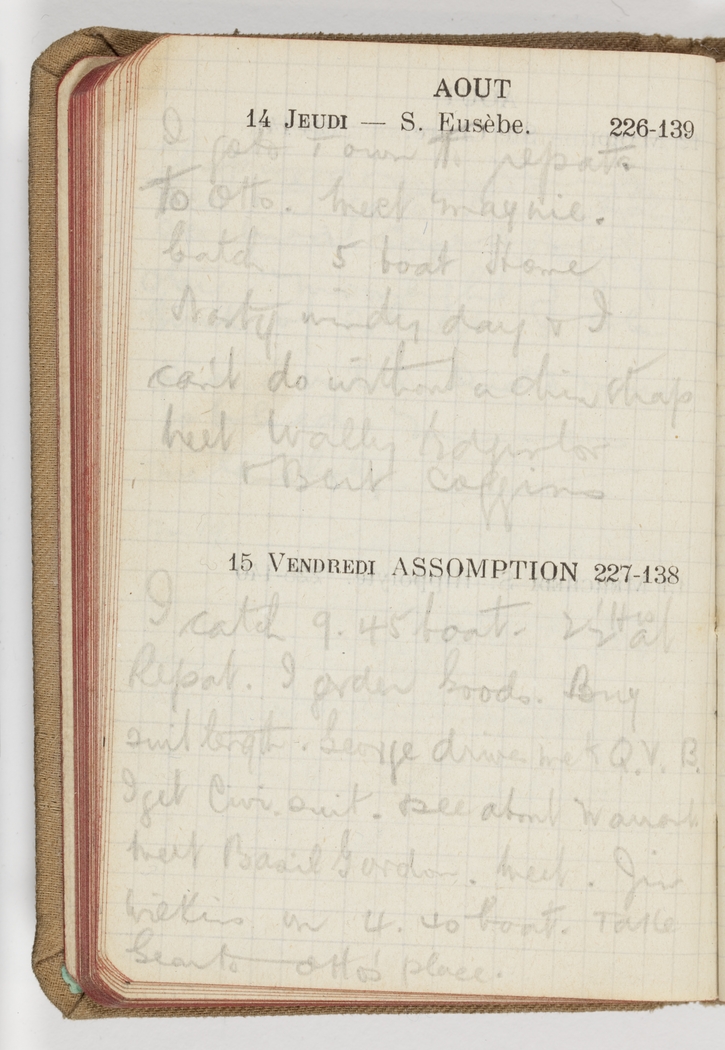 AOUT
14 JEUDI — S. Eusèbe. 226-139
I go to Town to repat
To Otto. Meet Maynie.
Catch 5 boat Home
Nasty windy day & I
can't do without a chin strap
Meet Wally
& Bert Coggins
15 VENDREDI ASSOMPTION 227-138
I catch 9.45 boat. 2½ Hrs at
Repat. I order Goods. Buy
suit length. George drives me to Q.V.B.
I get Civi. suit. See about Warrant
Meet Basil Gordon. Meet. Jim
Wilkins on 4.40 boat. Take
Gear to Otto's place.